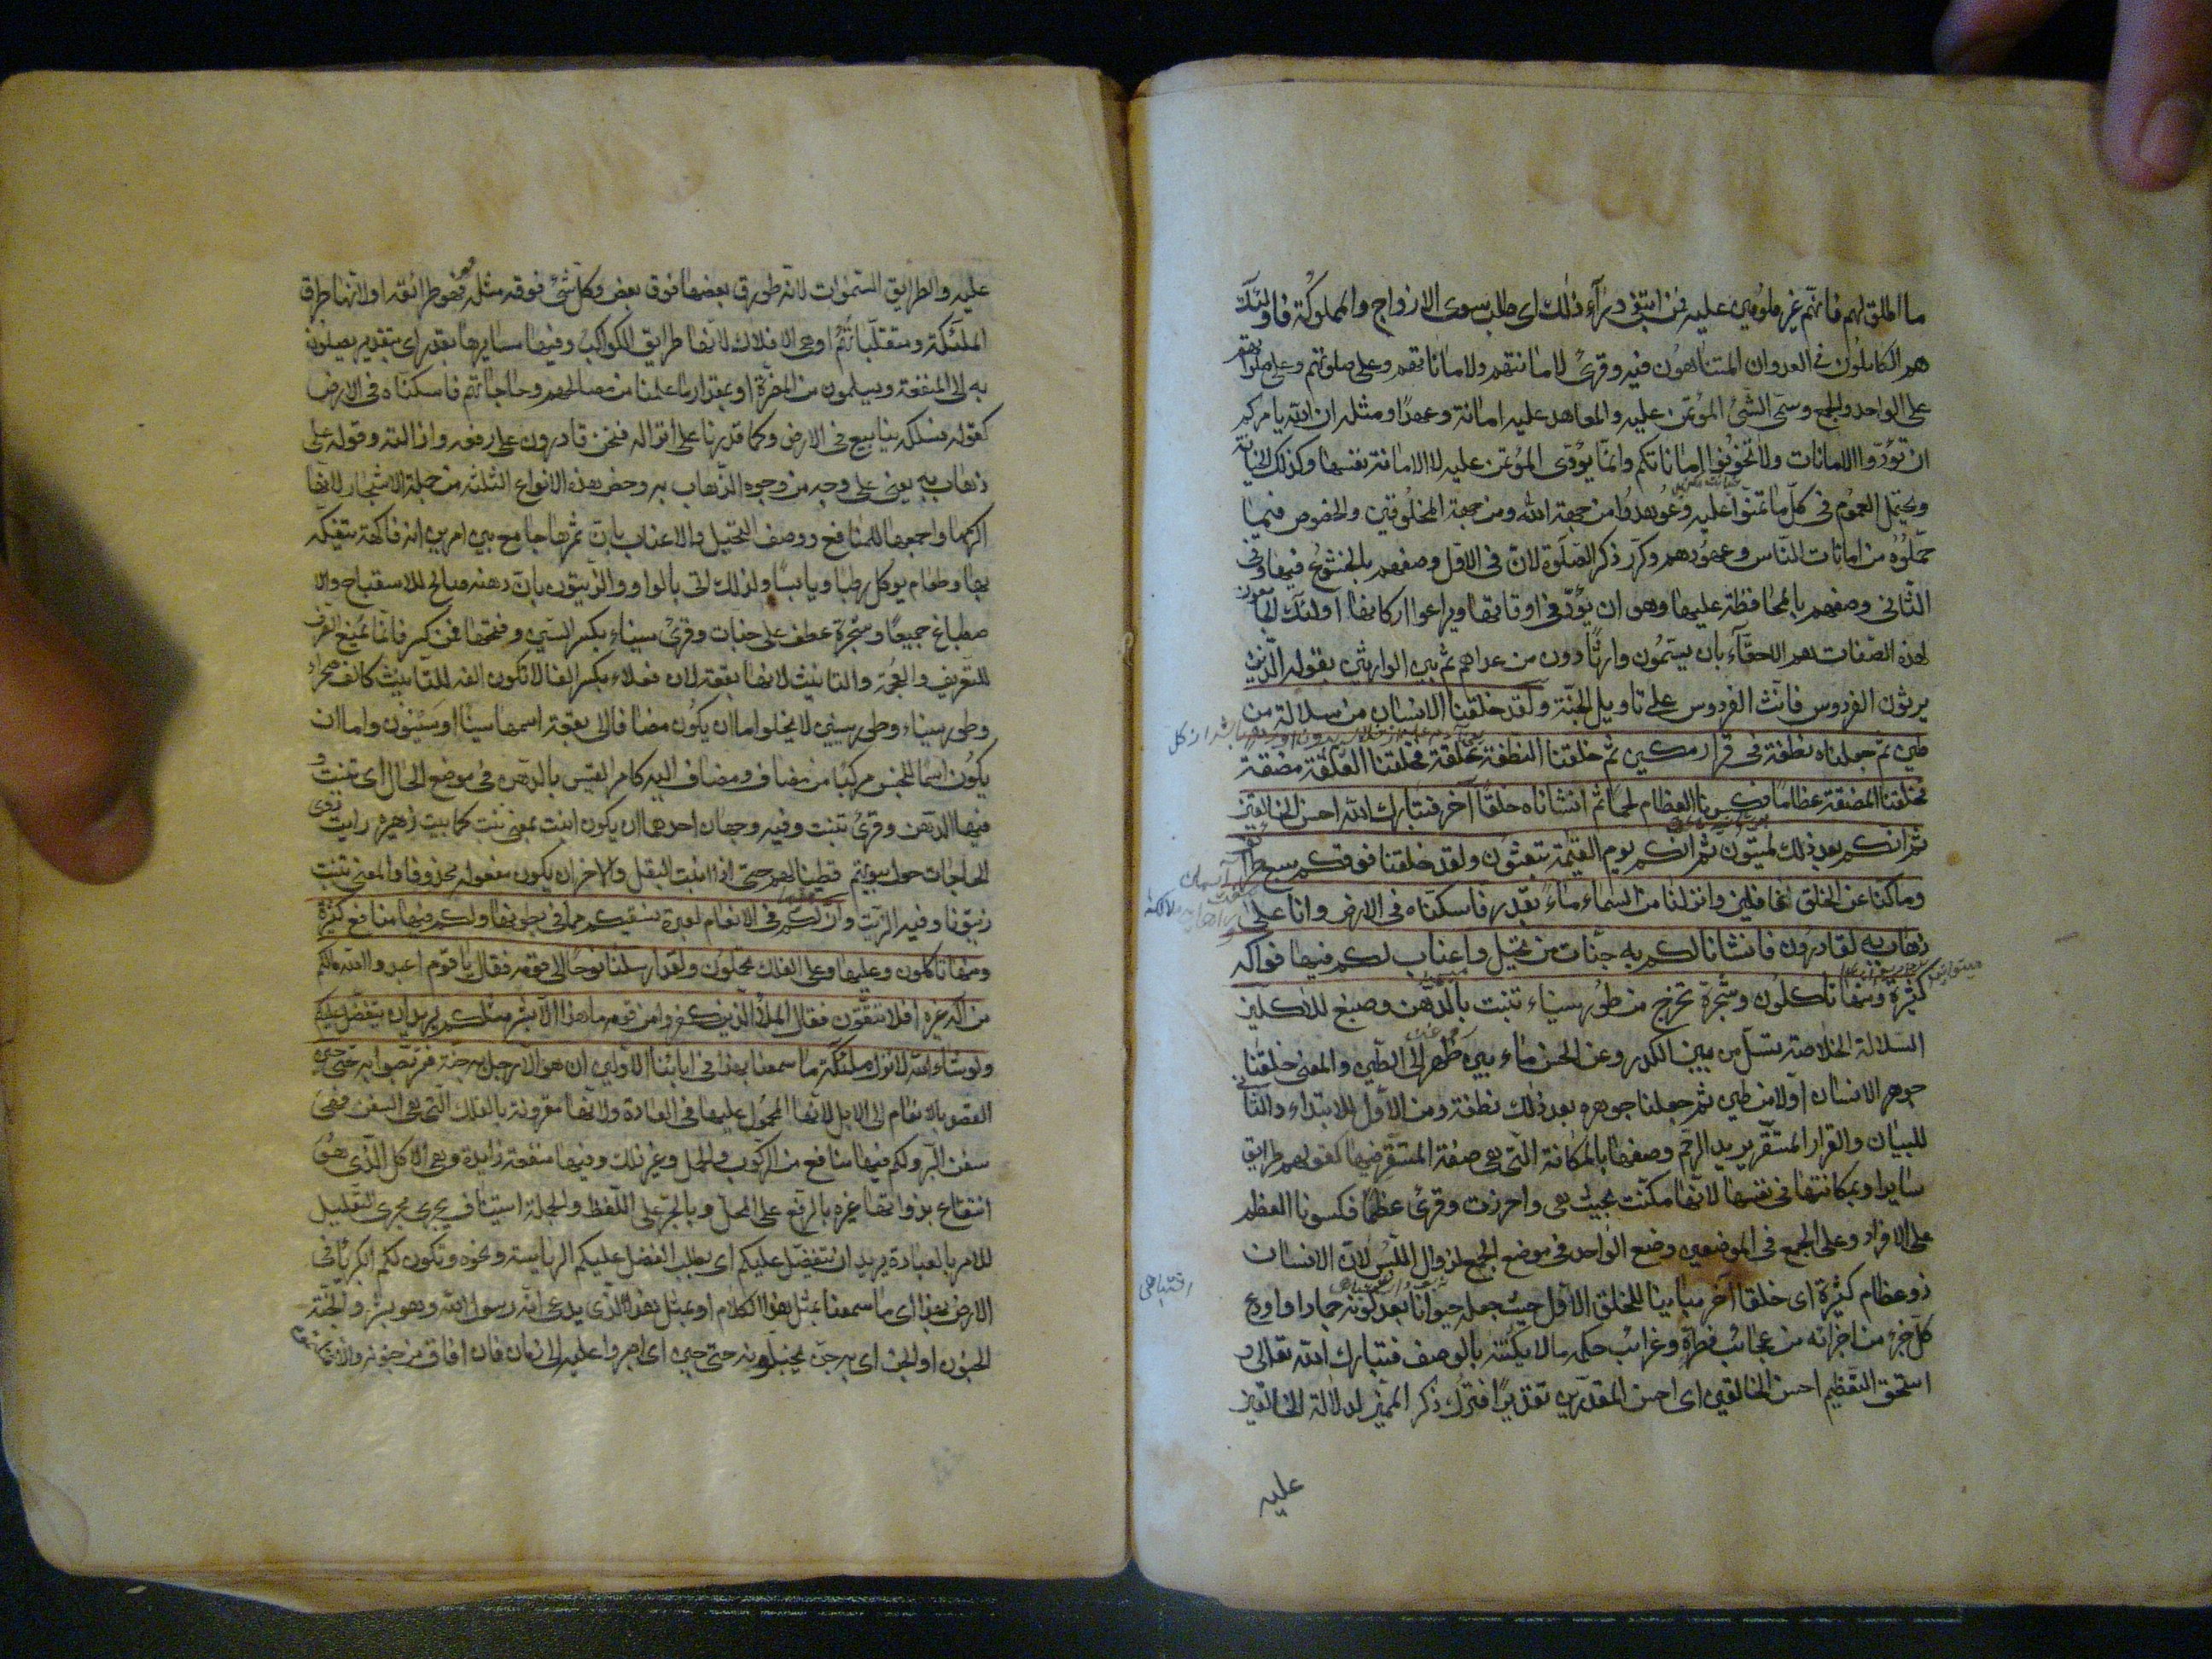 ما اطلق لهم فانهم غير ملومين عليه فمن ابتغى ورآء ذلك اى طلب سوى الازواج والمملوكة فاولئك
هم الكاملون فى العدوان المتناهون فيه وقرئ لامانتهم ولاماناتهم وعلى صلوتهم وعلى صلواتهم
على الواحد والجمع وسمى الشئ المؤتمن عليه والمعاهد عليه امانة وعهدا ومثله ان الله يامركم
ان تؤدوا الامانات ولا تخونوا اماناتكم وانما يؤدى المؤتمن عليه لا الامانة نفسها وكذلك الخيانة
ويحتمل العموم فى كل ما ائتمنوا عليه وعوهدوا من جهة الله ومن جهة المخلوقين والخصوص فيما
حملوه من امانات الناس وعهودهم وكرر ذكر الصلوة لان فى الاول وصفهم بالخشوع فيها وفى
الثانى وصفهم بالمحافظة عليها وهو ان يؤدى فى اوقاتها ويراعوا اركانها اولئك الجامعون
لهذه الصفات هم الاحقآء بان يسمون وارثا دون من عداهم ثم بين الوارثين بقوله الذين
يرثون الفردوس فانث الفردوس على تاويل الجنة ولقد خلقنا الانسان من سلالة من
طين ثم جعلناه نطفة فى قرار مكين ثم خلقنا النطفة علقة فخلقنا العلقة مضغة
فخلقنا المضغة عظاما فكسونا العظام لحما ثم انشاناه خلقا آخر فتبارك الله احسن الخالقين
ثم انكم بعد ذلك لميتون ثم انكم يوم القيمة تبعثون ولقد خلقنا فوقكم سبع طرائق
وما كنا عن الخلق غافلين وانزلنا من السماء ماء بقدر فاسكناه فى الارض وانا على
ذهاب به لقادرون فانشانا لكم به جنات من نخيل واعناب لكم فيها فواكه
كثيرة ومنها تاكلون وشجرة تخرج من طور سيناء تنبت بالدهن وصبغ للاكلين
السلالة الخلاصة تسل من بين الكدر وعن الحسن ماء بين ظهر الى الطين والمعنى خلقنا
جوهر الانسان اولا من طين ثم جعلنا جوهره بعد ذلك نطفة ومن الاول للابتداء والثانى
للبيان والقرار المستقر يريد الرحم وصفها بالمكانة التى هى صفة المستقر فيها كقولهم طريق
ساير او بمكانتها فى نفسها لانها مكنت بحيث هى واحرزت وقرئ عظما فكسونا العظم
على الافراد وعلى الجمع فى الموضعين وضع الواحد فى موضع الجمع لزوال اللبس لان الانسان
ذو عظام كثيرة اى خلقا آخر مباينا للخلق الاول حيث جعله حيوانا بعد كونه جمادا واودع
كل جزء من اجزائه من عجائب فطرة وغرائب حكمه ما لا يكتنه بالوصف فتبارك الله تعالى و
استحق التعظيم احسن الخالقين اى احسن المقدرين تقديرا فترك ذكر المميز لدلالة الخالقين
عليه
عليه والطرايق السموات لانه طورق بعضها فوق بعض وكل شئ فوقه مثله فهو طرائقه او لانها طرق
الملئكة ومتقلباتهم او هى الافلاك لانها طرايق الكواكب وفيها مسايرها بقدر اى بتقدير يصلون
به الى المنفعة ويسلمون من المضرة او بمقدار ما علمنا من مصالحهم وحاجاتهم فاسكناه فى الارض
كقوله فسلكه ينابيع فى الارض وكما قدرنا على انزاله فنحن قادرون على رفعه وازالته وقوله على
ذهاب به يعنى على وجه من وجوه الذهاب به وخص هذه الانواع الثلثة من جملة الاشجار لانها
اكرمها واجمعها للمنافع ووصف النخيل والاعناب بان ثمرها جامع بين امرين انه فاكهة يتفكه
بها وطعام يوكل رطبا ويابسا ولذلك اتى بالواو والزيتون بان دهنه صالح للاستصباح والا
صطباغ جميعا وشجرة عطف على جنات وقرئ سيناء بكسر السين وفتحها فمن كسر فانما يمنع الصرف
للتعريف والعجمة والتانيث لانها بقعة لان فعلاء بكسر الفا لا تكون الفه للتانيث كالف صحراء
وطور سيناء وطور سينين لا يخلو اما ان يكون مضافا الى بقعة اسمها سينا او سينون واما ان
يكون اسما للجبل مركبا من مضاف ومضاف اليه كامرا القيس بالدهن فى موضع الحال اى تنبت و
فيها الدهن وقرئ تنبت وفيه وجهان احدهما ان يكون انبت بمعنى نبت كما بيت زهير رايت ذوى
الحاجات حول بيوتهم قطينا لهم حتى اذا انبت البقل والاخر ان يكون مفعوله محذوفا والمعنى تنبت
زيتونا وفيه الزيت وان لكم فى الانعام لعبرة نسقيكم مما فى بطونها ولكم فيها منافع كثيرة
ومنها تاكلون وعليها وعلى الفلك تحملون ولقد ارسلنا نوحا الى قومه فقال يا قوم اعبدوا الله مالكم
من اله غيره افلا تتقون فقال الملؤ الذين كفروا من قومه ما هذا الا بشر مثلكم يريد ان يتفضل عليكم
ولو شاء الله لانزل ملئكة ما سمعنا بهذا فى ابائنا الاولين ان هو الا رجل به جنة فتربصوا به حتى حين
القصد بالانعام الى الابل لانها المحمول عليها فى العادة ولانها مقرونة بالفلك التى هى السفن فهى
سفن البر ولكم فيها منافع من الركوب والحمل وغير ذلك وفيها منفعة زايدة وهى الاكل الذى هو
انتفاع بذواتها غيره بالرفع على المحل وبالجر على اللفظ والجملة استيناف يجرى مجرى التعليل
للامر بالعبادة يريد ان يتفضل عليكم اى يطلب الفضل عليكم الرياسة ونحوه وتكون لكم الكبرياء فى
الارض بهذا اى ما سمعنا بمثل هذا الكلام او بمثل هذا الذى يدعى انه رسول الله وهو بشر والجنة
الجنون او الجن اى به جن يخبلونه حتى حين اى اصبروا عليه الى زمان فان افاق من جنونه والا